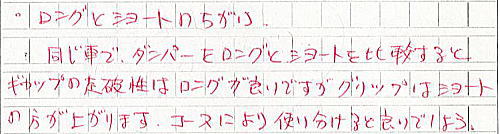 。ロングとショートのちがい.
同じ車で.ダンパーをロングとショートを比較すると
ギャップの走破性はロングが良いですがグリップはショート
の方が上がります.コースにより使い分けると良いでしょう.